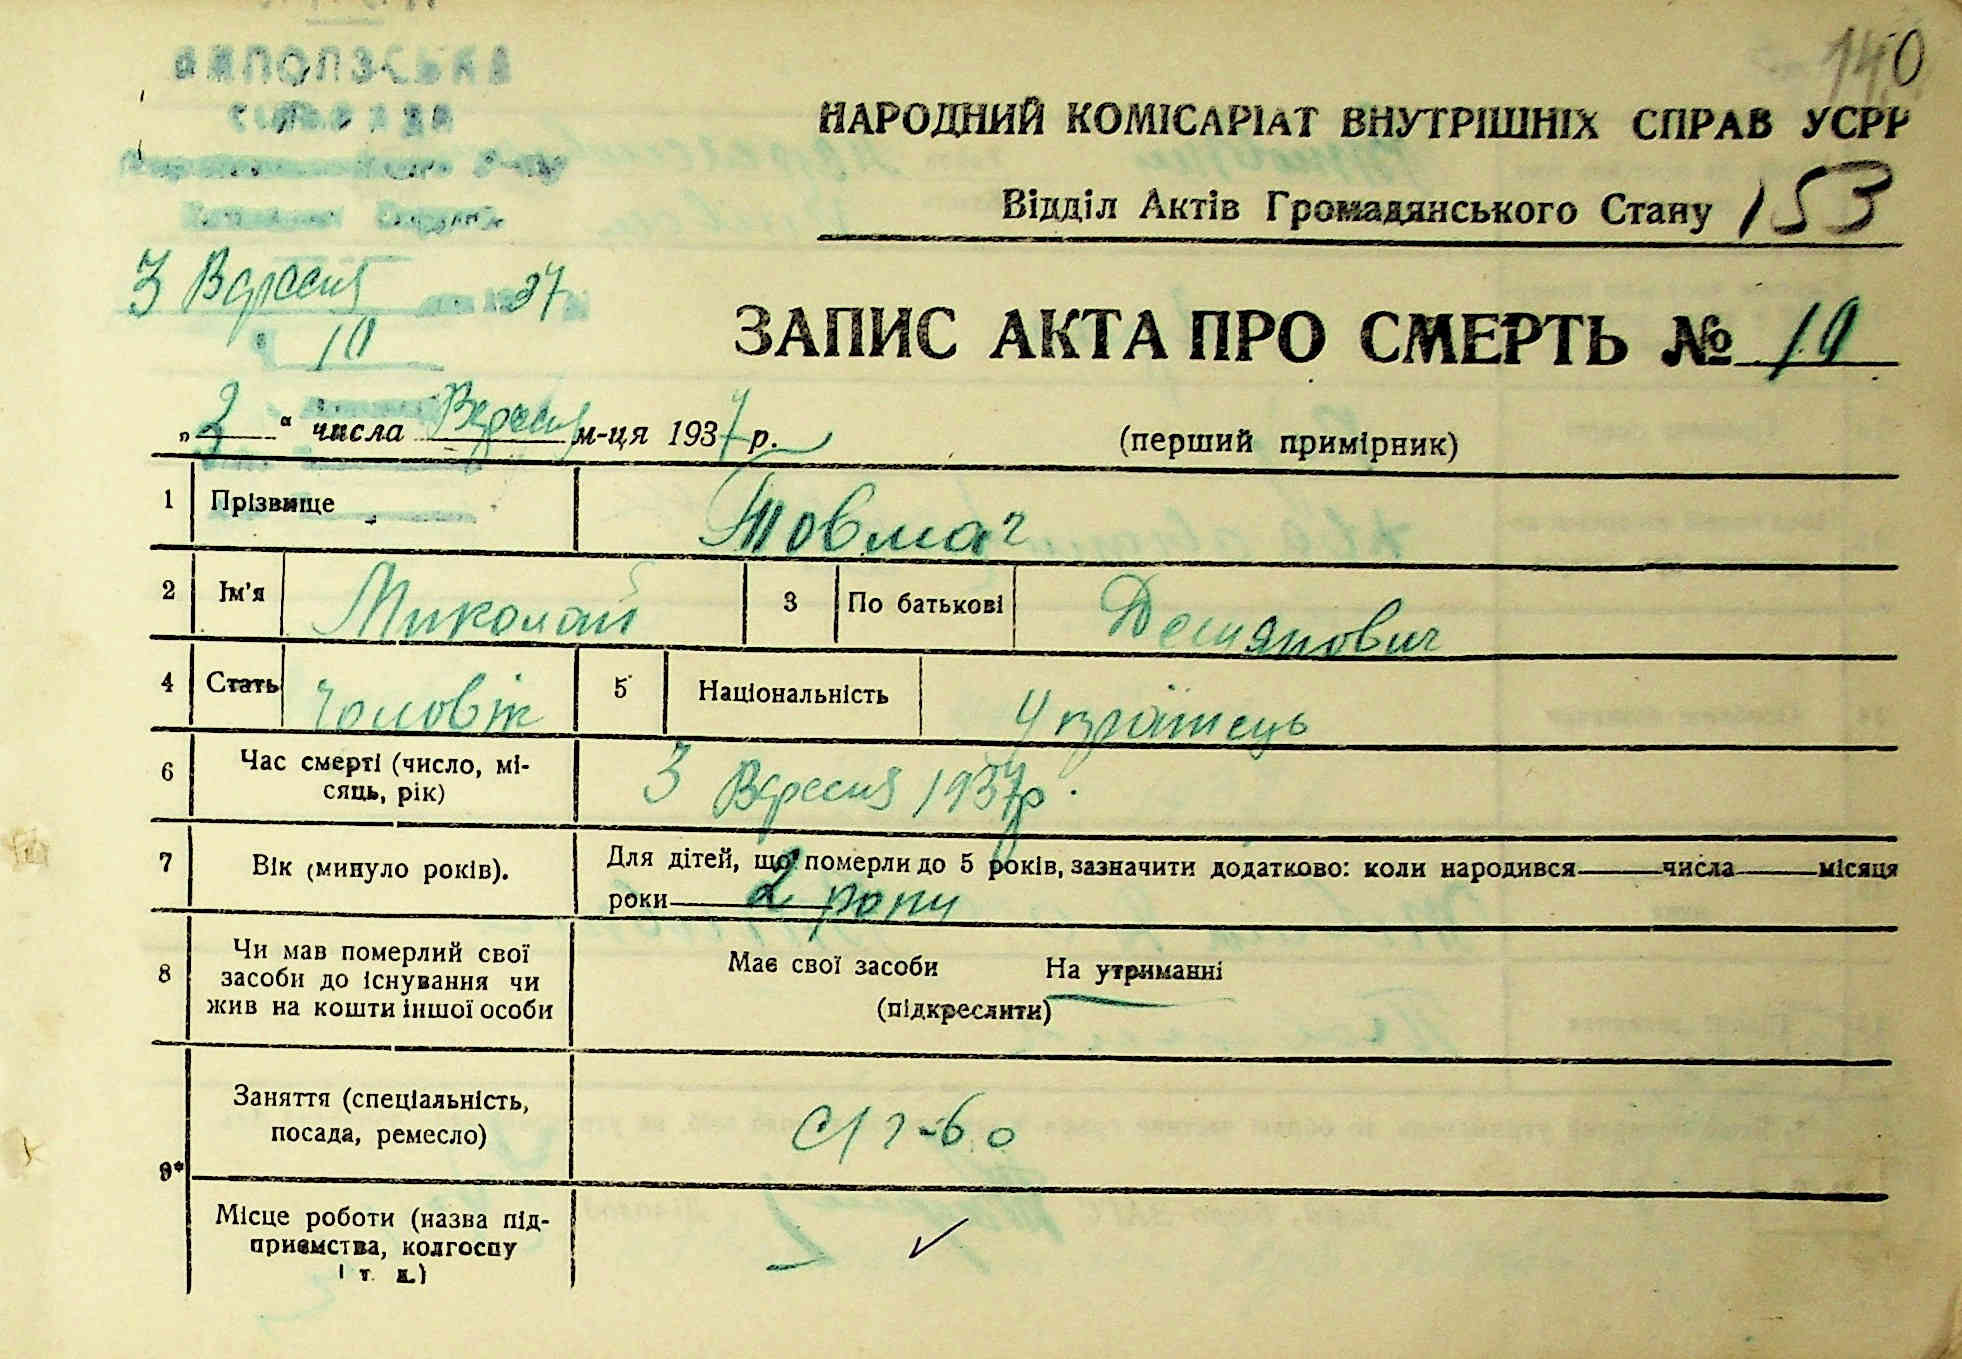 140
НАРОДНИЙ КОМІСАРІАТ ВНУТРІШНІХ СПРАВ УСРР
Відділ Актів Громадянського Стану 153
3 Вересня 37
10
ЗАПИС АКТА ПРО СМЕРТЬ № 10
„3“ числа Вересня м-ця 1937 р.
(перший примірник)
1 Прізвище Товмач
2 Ім'я Миколай 3 По батькові Демянович
4 Стать Чоловік 5 Національність Українець
6 Час смерті (число, мі-
сяць, рік) 3 Вересня 1937р.
7 Вік (минуло років). Для дітей, що померли до 5 років, зазначити додатково: коли народився — числа — місяця
роки 2 роки
8 Чи мав померлий свої
засоби до існування чи
жив на кошти іншої особи
Має свої засоби На утриманні
(підкреслити)
9* Заняття (спеціальність,
посада, ремесло) С/г-во
Місце роботи (назва під-
приємства, колгоспу
і т. д.)